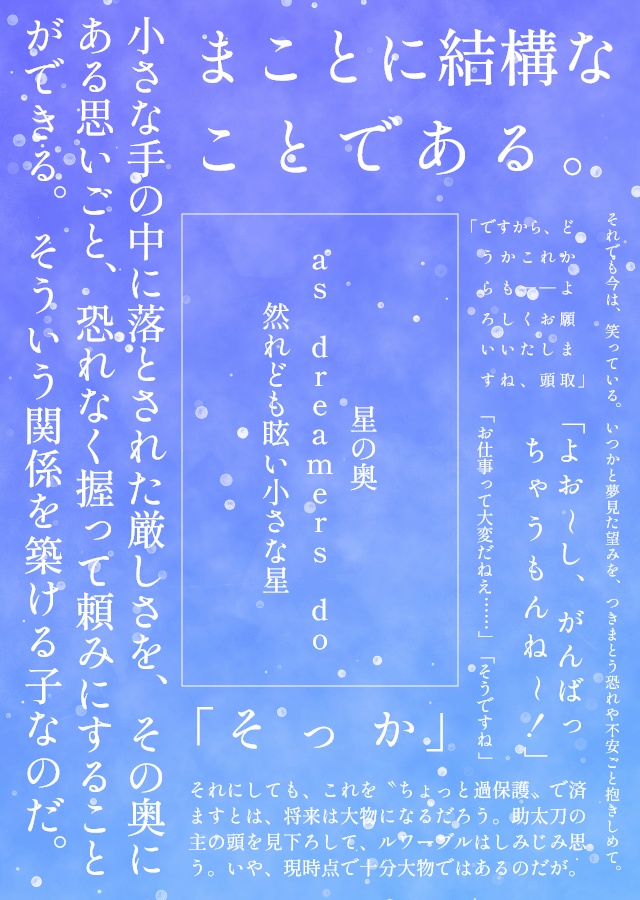 まことに結構な
ことである。
それでも今は、笑っている。いつかと夢見た望みを、つきまとう恐れや不安ごと抱きしめて。
「ですから、ど
うかこれか
らも――よ
ろしくお願
いいたしま
すね、頭取」
「よお～し、がんばっ
ちゃうもんね～！」
「お仕事って大変だねえ……」「そうですね」
星の奥
as dreamers do
然れども眩い小さな星
「そっか」
それにしても、これを〝ちょっと過保護〟で済
ますとは、将来は大物になるだろう。助太刀の
主の頭を見下ろして、ルワーブルはしみじみ思
う。いや、現時点で十分大物ではあるのだが。
小さな手の中に落とされた厳しさを、その奥に
ある思いごと、恐れなく握って頼みにすること
ができる。そういう関係を築ける子なのだ。